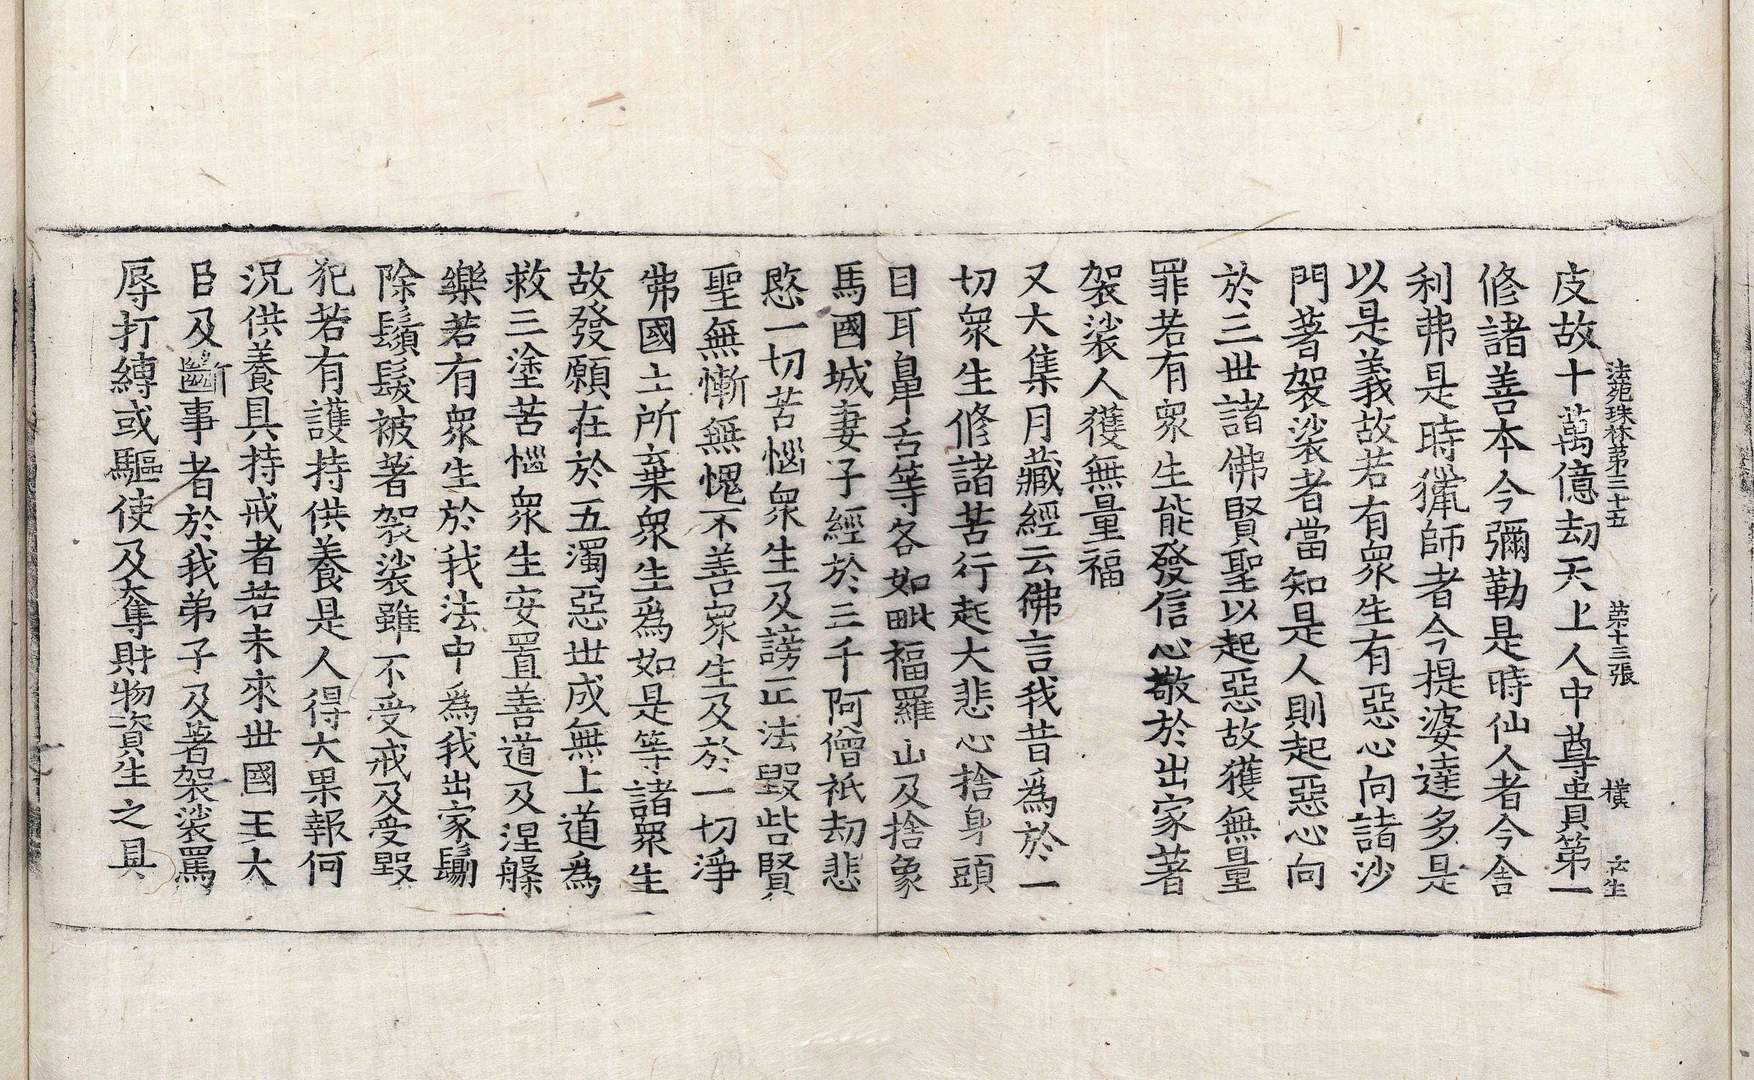 法苑珠林第三十五 第十三張 橫
皮故十萬億劫天上人中尊貴第一
修諸善本今彌勒是時仙人者今舍
利弗是時獵師者今提婆達多是
以是義故若有衆生有惡心向諸沙
門著袈裟者當知是人則起惡心向
於三世諸佛賢聖以起惡故獲無量
罪若有衆生能發信心敬於出家著
袈裟人獲無量福
又大集月藏經云佛言我昔爲於一
切衆生修諸苦行起大悲心捨身頭
目耳鼻舌等各如毗福羅山及捨象
馬國城妻子經於三千阿僧祇劫悲
愍一切苦惱衆生及謗正法毀呰賢
聖無慚無愧不善衆生及於一切淨
佛國土所棄衆生爲如是等諸衆生
故發願在於五濁惡世成無上道爲
救三塗苦惱衆生安置善道及涅槃
樂若有衆生於我法中爲我出家剔
除鬚髮被著袈裟雖不受戒及受毀
犯若有護持供養是人得大果報何
況供養具持戒者若未來世國王大
臣及斷事者於我弟子及著袈裟罵
辱打縛或驅使及奪財物資生之具